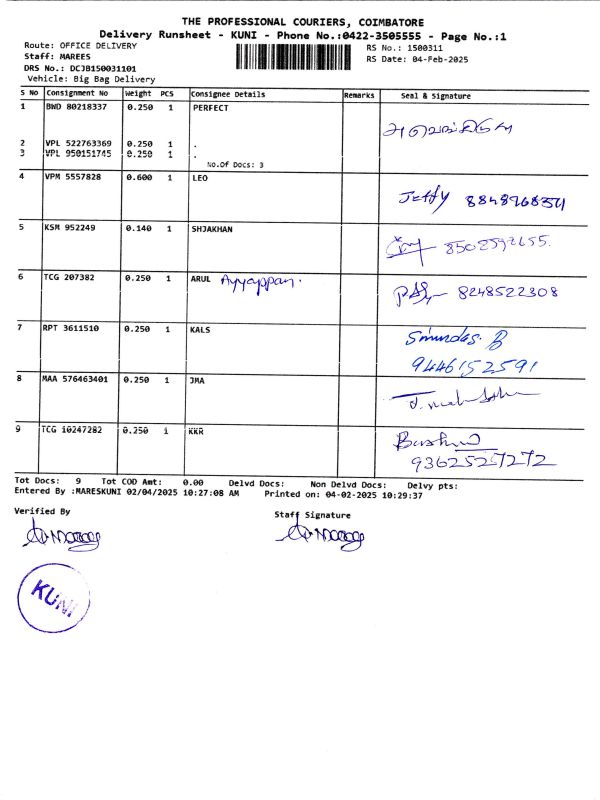 THE PROFESSIONAL COURIERS, COIMBATORE
Delivery Runsheet - KUNI - Phone No.:0422-3505555 - Page No.:1
Route: OFFICE DELIVERY
RS No.: 1500311
Staff: MAREES
RS Date: 04-Feb-2025
DRS No.: DCJB150031101
Vehicle: Big Bag Delivery
S No Consignment No Weight PCS Consignee Details Remarks Seal & Signature
1 BWD 80218337 0.250 1 PERFECT
2 VPL 522763369 0.250 1 .
3 VPL 950151745 0.250 1 .
No.Of Docs: 3
4 VPM 5557828 0.600 1 LEO
5 KSM 952249 0.140 1 SHJAKHAN
8502592655.
6 TCG 207382 0.250 1 ARUL Ayyappan.
8248522308
7 RPT 3611510 0.250 1 KALS
9446152591
8 MAA 576463401 0.250 1 JMA
9 TCG 10247282 0.250 1 KKR
9362527272
Tot Docs: 9 Tot COD Amt: 0.00 Delvd Docs: Non Delvd Docs: Delvy pts:
Entered By :MARESKUNI 02/04/2025 10:27:08 AM Printed on: 04-02-2025 10:29:37
Verified By
Staff Signature
KUNI